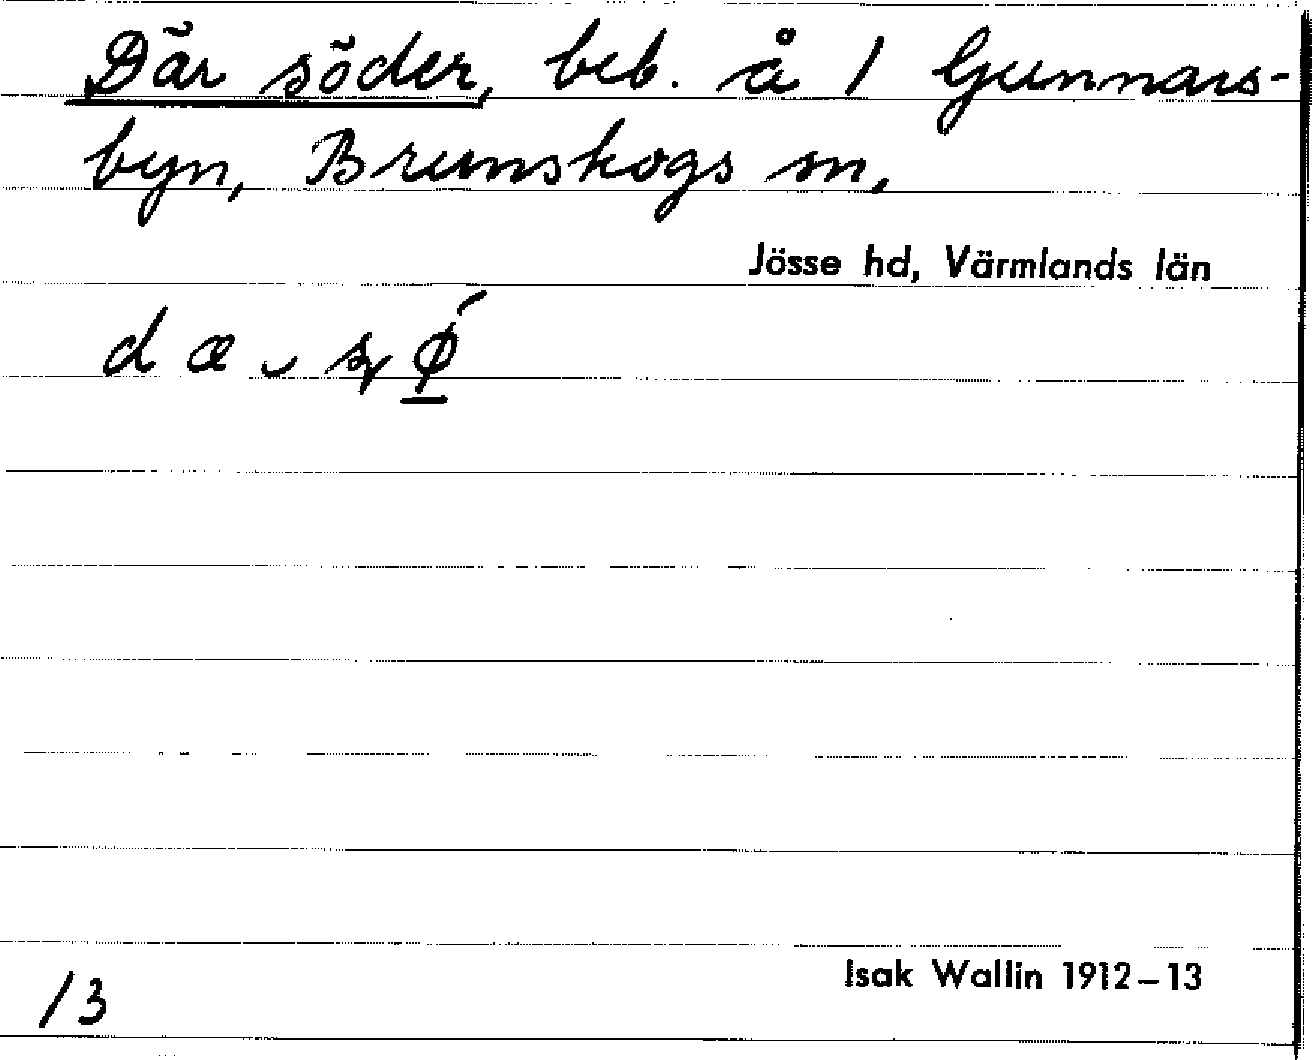 Där söder, beb. å 1 Gunnars-
byn, Brunskogs sn,
Jösse hd, Värmlands län
d æ ꞈ s ǿ
Isak Wallin 1912–13
13